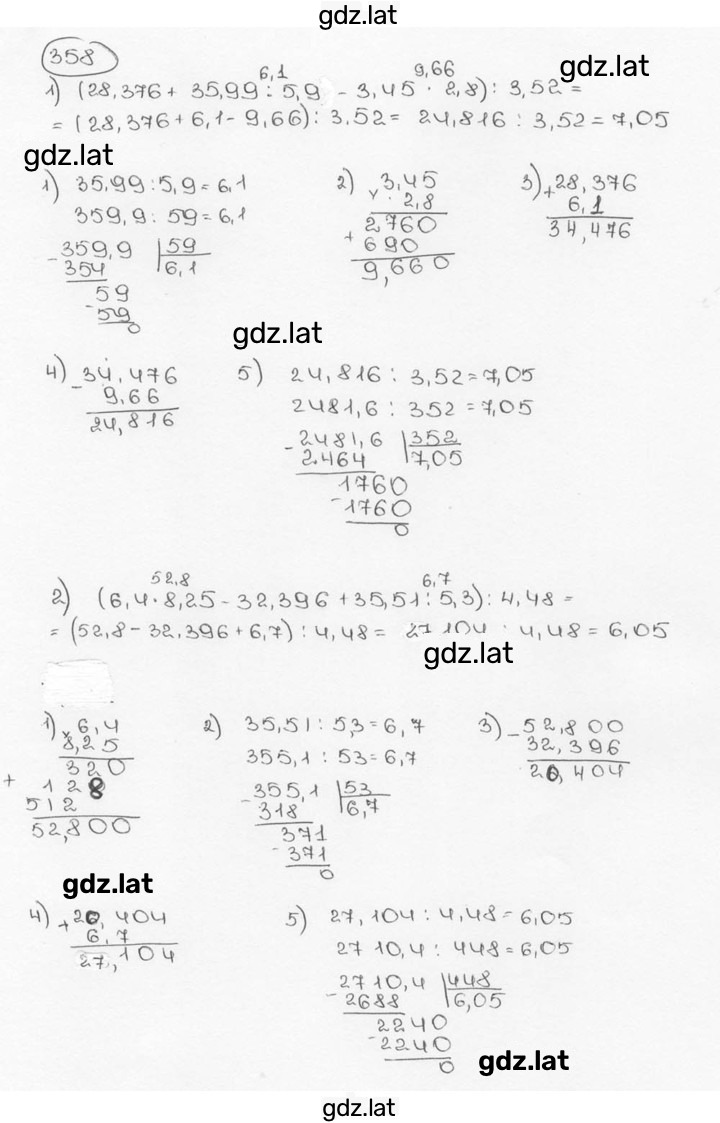 gdz.lat
358
6,1 9,66 gdz.lat
1) (28,376 + 35,99 : 5,9 - 3,45 · 2,8) : 3,52 =
= (28,376 + 6,1 - 9,66) : 3,52 = 24,816 : 3,52 = 7,05
gdz.lat
1) 35,99 : 5,9 = 6,1
359,9 : 59 = 6,1
- 359,9 | 59
354 | 6,1
59
- 59
0
2) 3,45
× 2,8
2760
+ 690
9,660
3) + 28,376
6,1
34,476
gdz.lat
4) - 34,476
9,66
24,816
5) 24,816 : 3,52 = 7,05
2481,6 : 352 = 7,05
- 2481,6 | 352
2464 | 7,05
1760
- 1760
0
52,8 6,7
2) (6,4 · 8,25 - 32,396 + 35,51 : 5,3) : 4,48 =
= (52,8 - 32,396 + 6,7) : 4,48 = 27,104 : 4,48 = 6,05
gdz.lat
1) × 6,4
8,25
320
+ 128
512
52,800
2) 35,51 : 5,3 = 6,7
355,1 : 53 = 6,7
- 355,1 | 53
318 | 6,7
371
- 371
0
3) - 52,800
32,396
20,404
gdz.lat
4) + 20,404
6,7
27,104
5) 27,104 : 4,48 = 6,05
2710,4 : 448 = 6,05
- 2710,4 | 448
2688 | 6,05
2240
- 2240
0
gdz.lat
gdz.lat